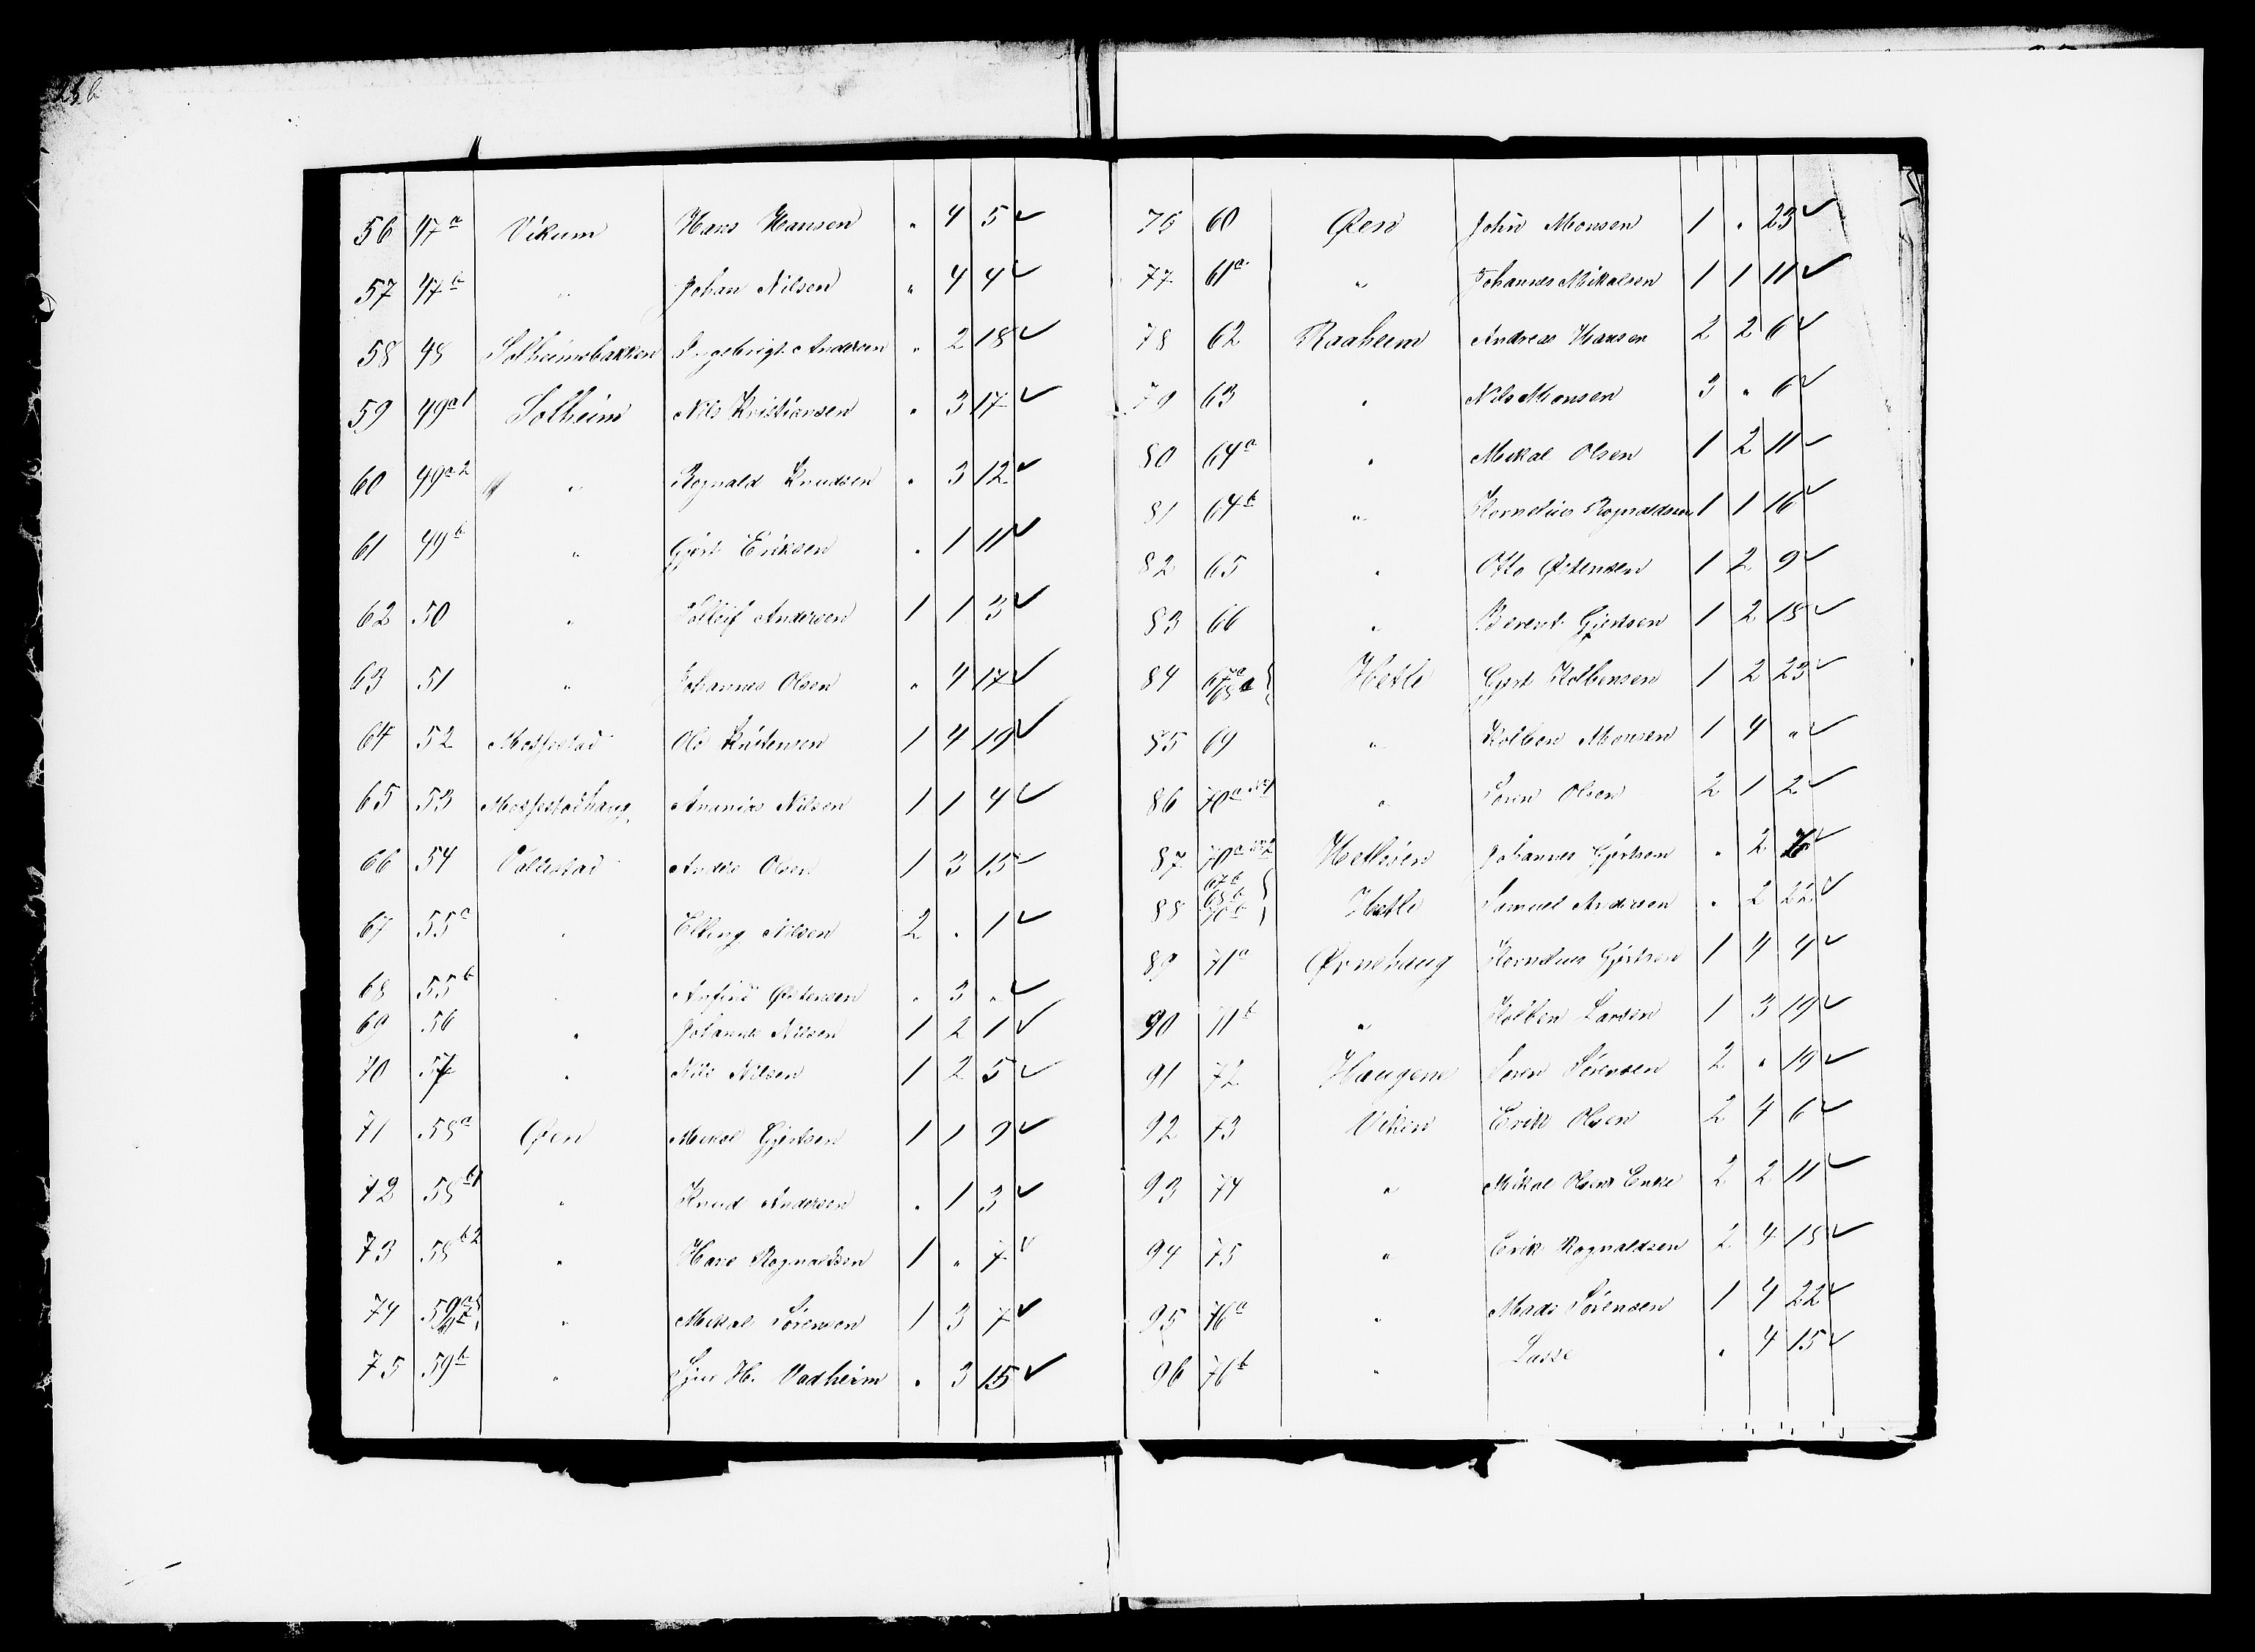 56 47a Vikum Hans Hansen " 4 5 ✓
57 47b " Johan Nilsen " 4 4 ✓
58 48 Solheimsbakken Ingebrigt Andersen " 2 18 ✓
59 49a1 Solheim Nils Kristiansen " 3 17 ✓
60 49a2 " Rognald Knudsen " 3 12 ✓
61 49b " Gjert Eriksen " 1 11 ✓
62 50 " Solleif Andersen 1 1 3 ✓
63 51 " Johannes Olsen " 4 17 ✓
64 52 Mosfestad Ole Kristensen 1 4 19 ✓
65 53 Mosfestadhaug Ananias Nilsen 1 1 4 ✓
66 54 Vallestad Anders Olsen 1 3 15 ✓
67 55a " Elling Nilsen 2 " 1 ✓
68 55b " Anfind Østensen " 3 " ✓
69 56 " Johannes Nilsen 1 2 1 ✓
70 57 " Nils Nilsen 1 2 5 ✓
71 58a Øen Mikal Gjertsen 1 1 9 ✓
72 58b1 " Knud Andersen " 1 3 ✓
73 58b2 " Hans Rognaldsen 1 " 7 ✓
74 59a " Mikal Sørensen 1 3 7 ✓
75 59b " H. Vadheim " 3 15 ✓
76 60 Øen John Monsen 1 " 23 ✓
77 61a " Johannes Mikalsen 1 1 11 ✓
78 62 Raaheim Andreas Hansen 2 2 6 ✓
79 63 " Nils Monsen 3 " 6 ✓
80 64a " Mikal Olsen 1 2 11 ✓
81 64b " Kornelius Rognaldsen 1 1 16 ✓
82 65 " Otto Østensen 1 2 9 ✓
83 66 " Berent Gjertsen 1 2 18 ✓
84 67a 68a Hetle Gjert Kolbensen 1 2 23 ✓
85 69 " Kolben Monsen 1 4 " ✓
86 70a № 1 " Søren Olsen 2 1 2 ✓
87 70a № 2 Hetleøen Johannes Gjertsen " 2 ✓
88 67b 68b 70b Hetle Samuel Andersen " 2 22 ✓
89 71a Ørnehaug Kornelius Gjertsen 1 4 4 ✓
90 71b " Kolben Larsen 1 3 19 ✓
91 72 Haugene Søren Sørensen 2 " 19 ✓
92 73 Viken Erik Olsen 2 4 6 ✓
93 74 " Mikal Olsens Enke 2 2 11 ✓
94 75 " Erik Rognaldsen 2 4 18 ✓
95 76a " Mads Sørensen 1 4 22 ✓
96 76b " Lasse " 4 15 ✓